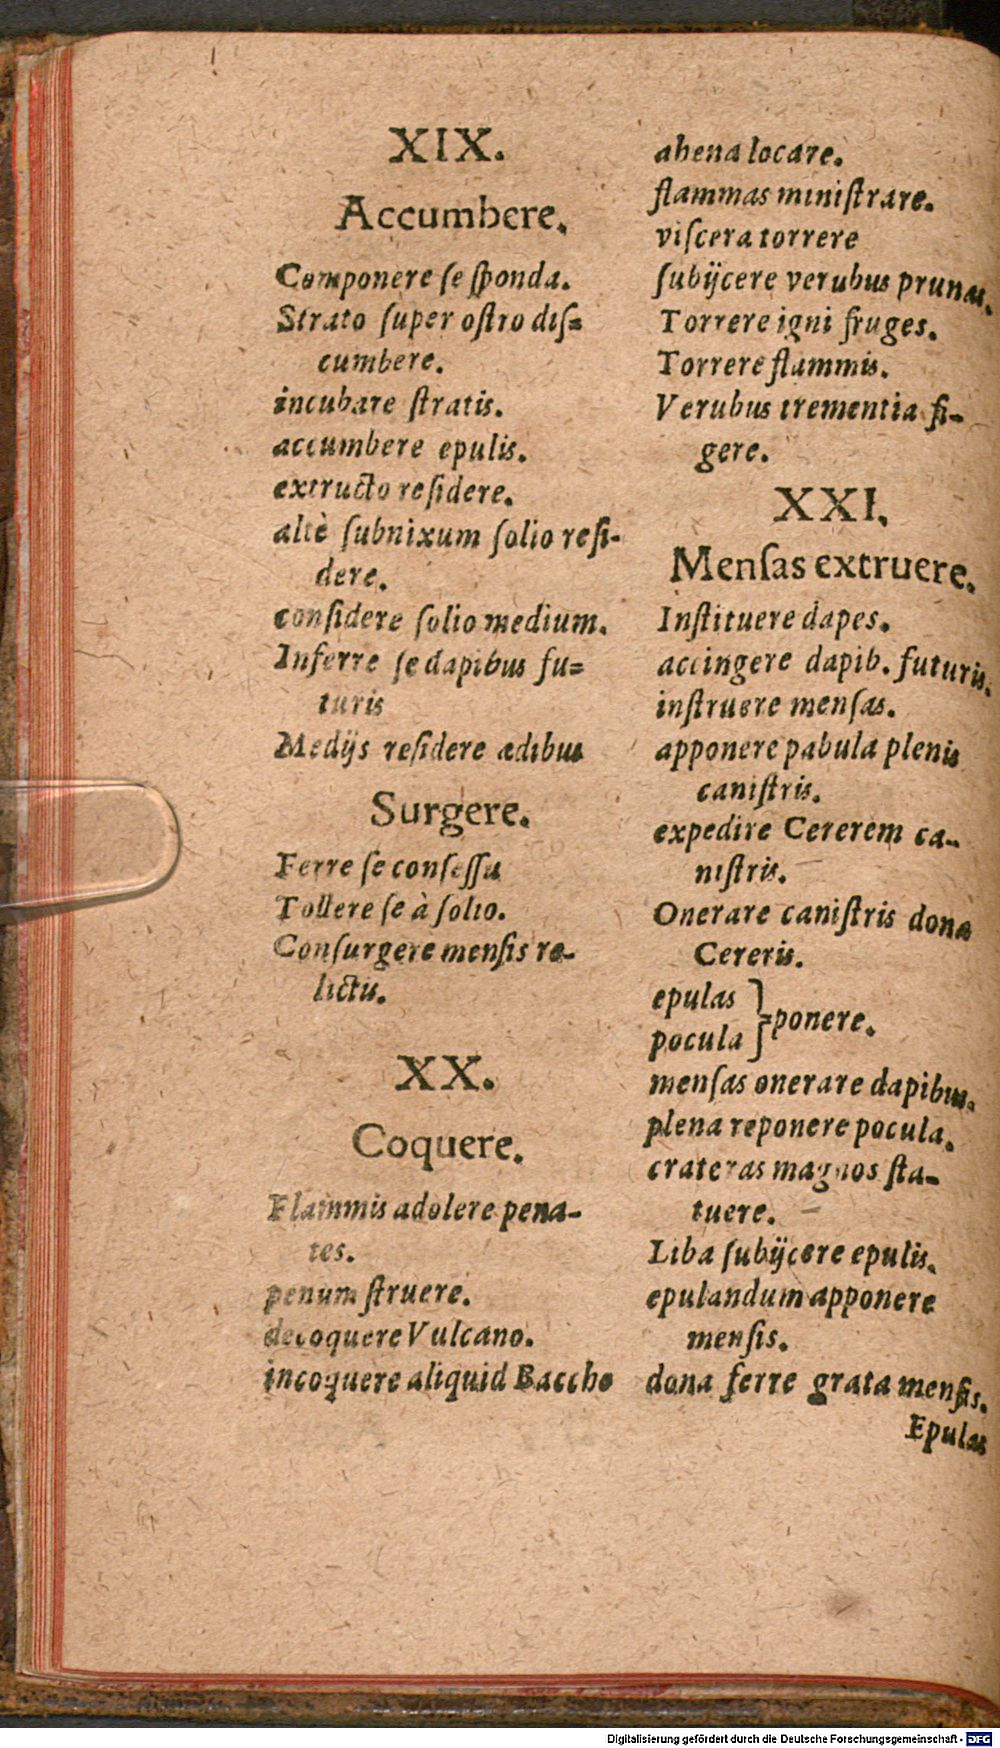 XIX.
Accumbere.
Componere ſe ſponda.
Strato ſuper oſtro diſ=
cumbere.
incubare ſtratis.
accumbere epulis.
extructo reſidere.
altè ſubnixum ſolio reſi-
dere.
conſidere ſolio medium.
Inferre ſe dapibus fu=
turis
Medijs reſidere ædibus
Surgere.
Ferre ſe conſeſſu
Tollere ſe à ſolio.
Conſurgere menſis re-
lictis.
XX.
Coquere.
Flammis adolere pena-
tes.
penum ſtruere.
decoquere Vulcano.
incoquere aliquid Baccho
ahena locare.
flammas miniſtrare.
viſcera torrere
ſubijcere verubus prunas.
Torrere igni fruges.
Torrere flammis.
Verubus trementia fi-
gere.
XXI.
Menſas extruere.
Inſtituere dapes.
accingere dapib. futuris.
inſtruere menſas.
apponere pabula plenis
caniſtris.
expedire Cererem ca-
niſtris.
Onerare caniſtris dona
Cereris.
epulas
pocula } ponere.
menſas onerare dapibus.
plena reponere pocula.
crateras magnos ſta-
tuere.
Liba ſubijcere epulis.
epulandum apponere
menſis.
dona ferre grata menſis.
Epulas
Digitalisierung gefördert durch die Deutsche Forschungsgemeinschaft - DFG